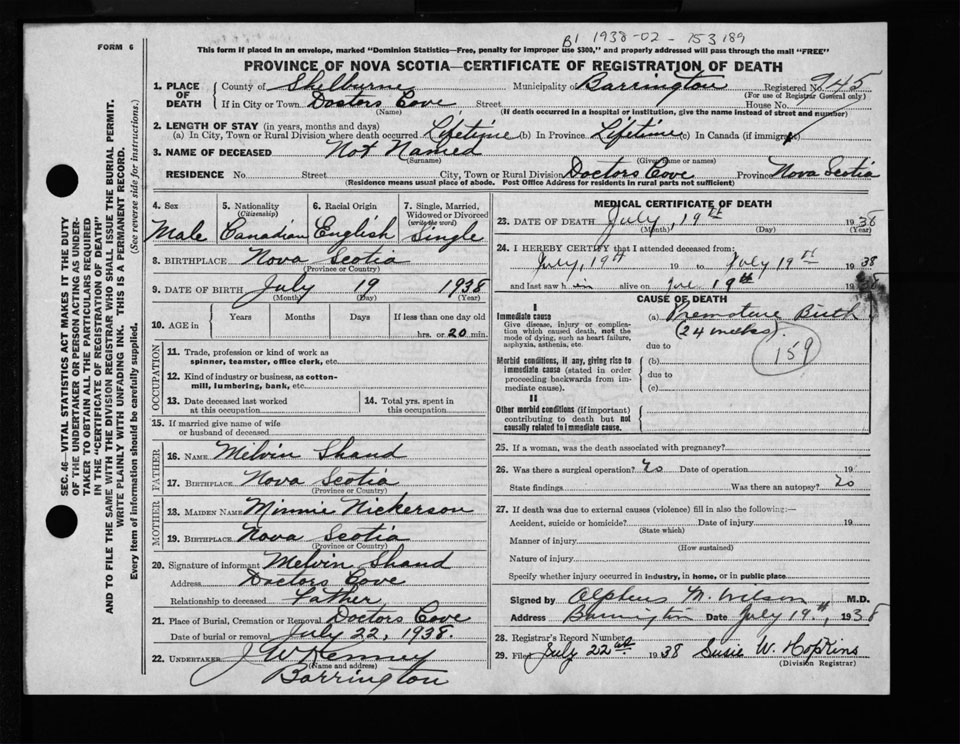 B1 1938-02-153189
FORM 6
This form if placed in an envelope, marked "Dominion Statistics—Free, penalty for improper use $300," and properly addressed will pass through the mail "FREE"
PROVINCE OF NOVA SCOTIA—CERTIFICATE OF REGISTRATION OF DEATH
1. PLACE OF DEATH County of Shelburne Municipality of Barrington Registered No. 945
(For use of Registrar General only)
If in City or Town Doctors Cove Street House No.
(Name) (If death occurred in a hospital or institution, give the name instead of street and number)
2. LENGTH OF STAY (in years, months and days)
(a) In City, Town or Rural Division where death occurred Lifetime (b) In Province Lifetime (c) In Canada (if immigrant)
3. NAME OF DECEASED Not Named
(Surname) (Given name or names)
RESIDENCE No. Street City, Town or Rural Division Doctors Cove Province Nova Scotia
(Residence means usual place of abode. Post Office Address for residents in rural parts not sufficient)
4. Sex Male
5. Nationality (Citizenship) Canadian
6. Racial Origin English
7. Single, Married, Widowed or Divorced (write the word) Single
8. BIRTHPLACE Nova Scotia
(Province or Country)
9. DATE OF BIRTH July 19 1938
(Month) (Day) (Year)
10. AGE in Years Months Days If less than one day old
hrs. or 20 min.
OCCUPATION
11. Trade, profession or kind of work as spinner, teamster, office clerk, etc.
12. Kind of industry or business, as cotton-mill, lumbering, bank, etc.
13. Date deceased last worked at this occupation
14. Total yrs. spent in this occupation
15. If married give name of wife or husband of deceased
FATHER
16. NAME Melvin Shand
17. BIRTHPLACE Nova Scotia
(Province or Country)
MOTHER
18. MAIDEN NAME Minnie Nickerson
19. BIRTHPLACE Nova Scotia
(Province or Country)
20. Signature of informant Melvin Shand
Address Doctors Cove
Relationship to deceased Father
21. Place of Burial, Cremation or Removal Doctors Cove
Date of burial or removal July 22, 1938.
22. UNDERTAKER J W Kenney
(Name and address)
Barrington
MEDICAL CERTIFICATE OF DEATH
23. DATE OF DEATH July, 19th 1938
(Month) (Day) (Year)
24. I HEREBY CERTIFY that I attended deceased from:
July, 19th 19 to July 19th 1938
and last saw him alive on 19th 19
CAUSE OF DEATH
I
Immediate cause
Give disease, injury or complication which caused death, not the mode of dying, such as heart failure, asphyxia, asthenia, etc.
(a) Premature Birth
(24 weeks).
due to
159
Morbid conditions, if any, giving rise to immediate cause (stated in order proceeding backwards from immediate cause).
(b)
due to
(c)
II
Other morbid conditions (if important) contributing to death but not causally related to immediate cause.
25. If a woman, was the death associated with pregnancy?
26. Was there a surgical operation? No Date of operation 19
State findings Was there an autopsy? No
27. If death was due to external causes (violence) fill in also the following:—
Accident, suicide or homicide? Date of injury 19
(State which)
Manner of injury
(How sustained)
Nature of injury
Specify whether injury occurred in industry, in home, or in public place
Signed by Alpheus M. Wilson M.D.
Address Barrington Date July 19th, 1938
28. Registrar's Record Number
29. Filed July 22nd 1938 Susie W. Hopkins
(Division Registrar)
SEC. 46—VITAL STATISTICS ACT MAKES IT THE DUTY
OF THE UNDERTAKER OR PERSON ACTING AS UNDER-
TAKER TO OBTAIN ALL THE PARTICULARS REQUIRED
IN THE "CERTIFICATE OF REGISTRATION OF DEATH"
AND TO FILE THE SAME WITH THE DIVISION REGISTRAR WHO SHALL ISSUE THE BURIAL PERMIT.
WRITE PLAINLY WITH UNFADING INK. THIS IS A PERMANENT RECORD.
Every item of information should be carefully supplied. (See reverse side for instructions.)